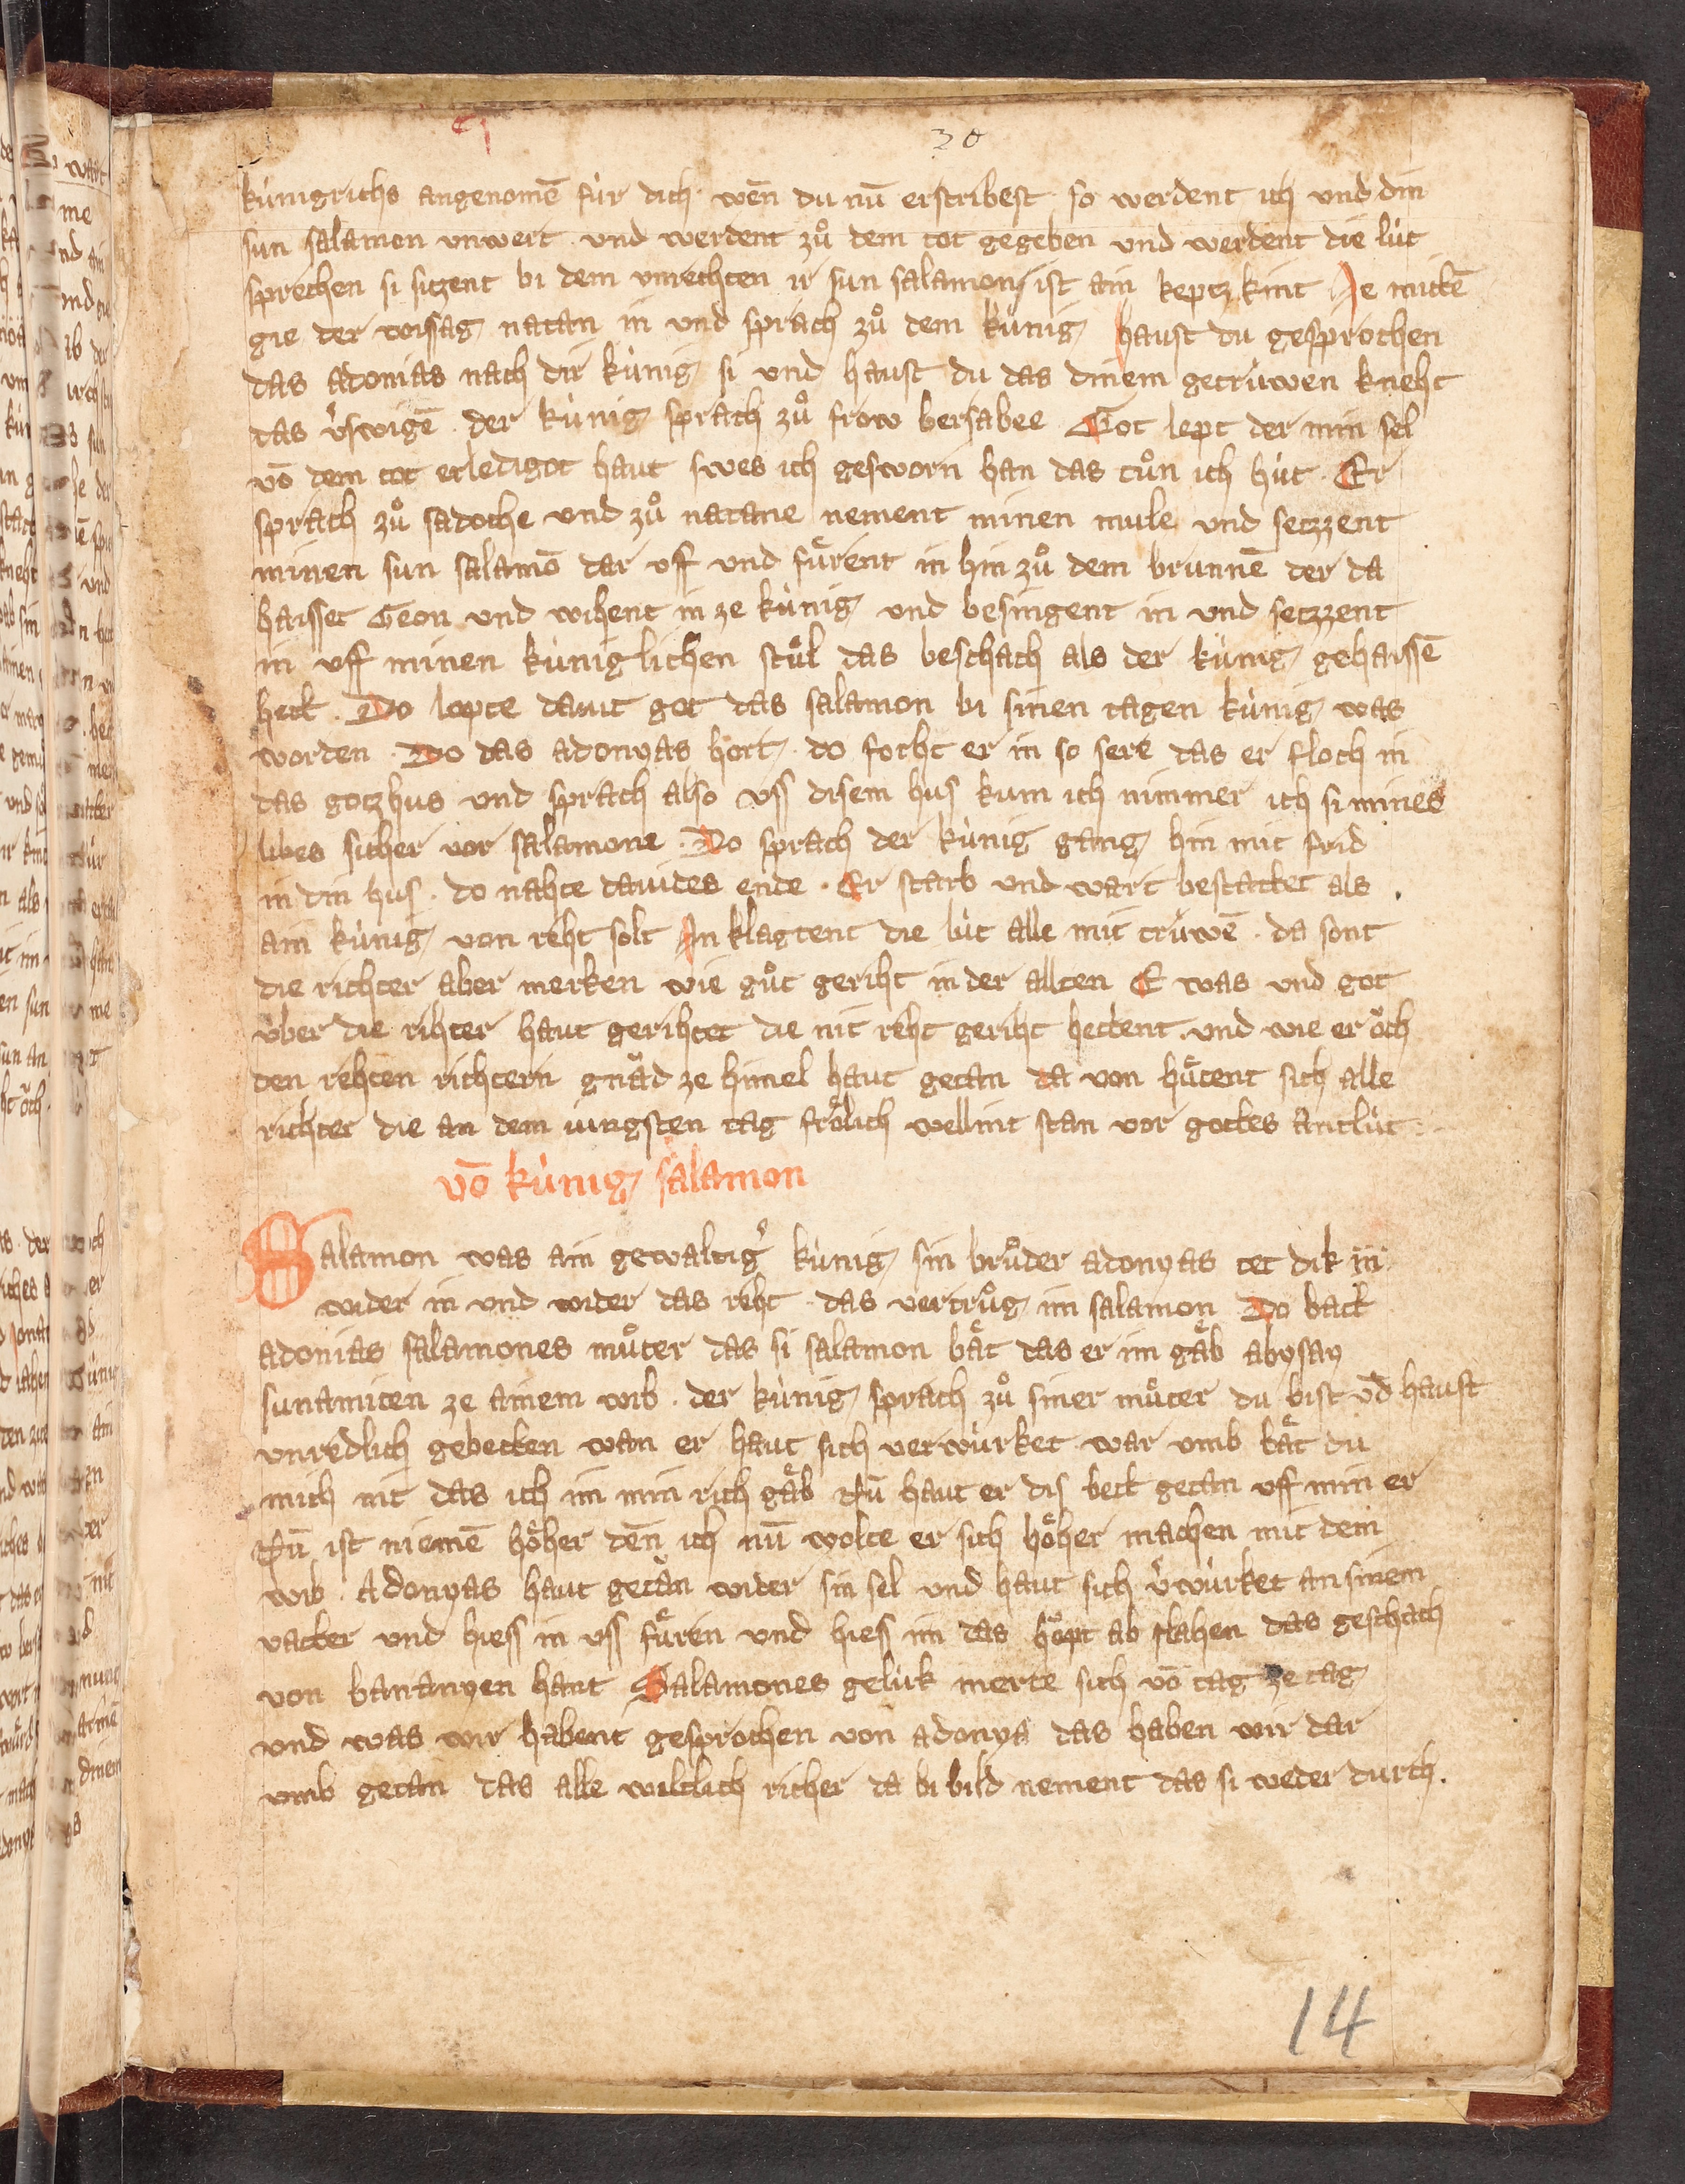 30
kúnigrichs angenomē fúr dich · wēn du nū erstribest · so werdent ich und din
sun salamon unwert · und werdent zů dem tot gegeben und werdent die lút
sprechen si sitzent bi dem unrechten ir sun salamon ist ain keptz kint Je mitte
gie der wissag natan in und sprach zů dem kúnig haust du gesprochen
das adonias nach dir kúnig si und haust du das dinem getrúwen kneht
das v̉swigē · der kúnig sprach zů frow bersabee Got lept der min sel
vō dem tot erledigot haut swes ich gesworn han das tůn ich hút · Er
sprach zů sadoche und zů natane nement minen mule und setzzent
minen sun salamō dar uff und fůrent in hin zů dem brunnē der da
haisset Geon und wihent in ze kúnig und besingent in und setzzent
in uff minen kúniglichen stůl das beschach als der kúnig gehaissē
hett · Do lopte dauit got das salamon bi sinen tagen kúnig was
worden · Do das adonyas hort · do forht er in so sere das er floch in
das gotzhus und sprach also uss disem hus kum ich nimmer ich si mines
libes sicher vor salamone · Do sprach der kúnig gang hin mit frid
in din hus · do nahte dauides ende · Er starb und wart bestattet als
ain kúnig von reht solt In klagtent die lút alle mit trúwē · da sont
die richter aber merken wie gůt geriht in der allten E was und got
úber die rihter haut gerihtet die nit reht geriht hettent und wie er och
den rehten richtern gnad ze himel haut getan da von hůtent sich alle
richter die an dem iungsten tag frölich wellint stan vor gottes antlút
vō kúnig salamon
Salamon was ain gewaltig̉ kúnig sin brůder adonyas tet dik in
wider in und wider das reht · das vertrůg im salamon Do batt
adonias salamones můter das si salamon bät das er im gäb abysay
sunamiten ze ainem wib · der kúnig sprach zů siner můter du bist vd̄ haust
unredlich gebetten wan er haut sich verwúrket war umb bät du
mich nit das ich im min rich gäb Nū haut er dis bett getan uff min er
Nū ist niemē höher dēn ich nū wolte er sich höher machen mit dem
wib · Adonyas haut getan wider sin sel und haut sich v̉wúrket an sinem
vatter und hiess in uss fůren und hies im das höpt ab slahen das geschach
von bananyen hant Salamones gelúk merte sich vō tag ze tag
und was wir habent gesprochen von adonya das haben wir dar
umb getan das alle wiltlich richer da bi bild nement das si weder durch ·
14